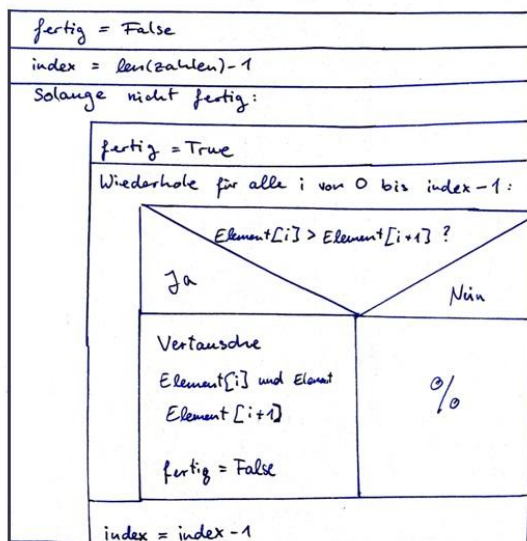 fertig = False
index = len(zahlen)-1
Solange nicht fertig:
fertig = True
Wiederhole für alle i von 0 bis index-1:
Element[i] > Element[i+1] ?
Ja
Nein
Vertausche
Element[i] und Element
Element [i+1]
fertig = False
%
index = index-1